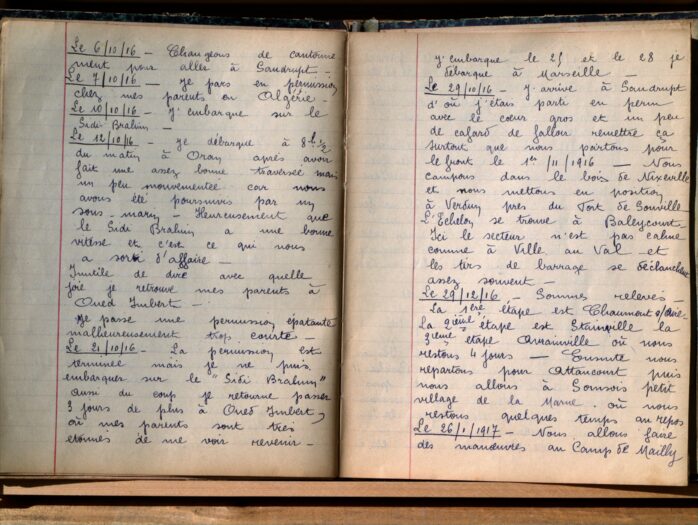 Le 6/10/16 — Changeons de cantonne
ment pour aller à Sandrupt —
Le 7/10/16 — je pars en permission
chez mes parents en Algérie —
Le 10/10/16 — j'embarque sur le
Sidi-Brahim —
Le 12/10/16 — je débarque à 8h 1/2
du matin à Oran après avoir
fait une assez bonne traversée mais
un peu mouvementée car nous
avons été poursuivis par un
sous-marin — Heureusement que
le Sidi Brahim a une bonne
vitesse et c'est ce qui nous
a sorti d'affaire —
Inutile de dire avec quelle
joie je retrouve mes parents à
Oued Imbert —
Je passe une permission epatante
malheureusement trop courte —
Le 21/10/16 — La permission est
terminée mais je ne puis
embarquer sur le "Sidi Brahim"
aussi du coup je retourne passer
3 jours de plus à Oued Imbert,
où mes parents sont très
etonnés de me voir revenir —
j'embarque le 25 et le 28 je
débarque à Marseille —
Le 29/10/16 — j'arrive à Sandrupt
d'où j'étais parti en perm
avec le cœur gros et un peu
de cafard de falloir remettre ça
surtout que nous partons pour
le front le 1er/11/1916 — Nous
campons dans le bois de Nixeville
et nous mettons en position
à Verdun près du Fort de Souville
L'Echelon se trouve à Baleycourt
Ici le secteur n'est pas calme
comme à Ville au Val et
les tirs de barrage se déclanchent
assez souvent —
Le 29/12/16 — Sommes relevés —
La 1ère étape est Chaumont s/Aire-
La 2ième étape est Stainville la
3ième étape Arrainville où nous
restons 4 jours — Ensuite nous
repartons pour Attancourt puis
nous allons à Somsois petit
village de la Marne où nous
restons quelques temps au repos
Le 26/1/1917 — Nous allons faire
des manœuvres au Camp de Mailly